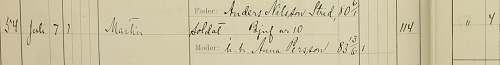 Fader: Anders Nilsson Strid, 80 6/1
54 Juli 7 7 Martin Soldat Bjuf nr 10 114 " 4
Moder: h. h. Anna Persson 83 13/6 1